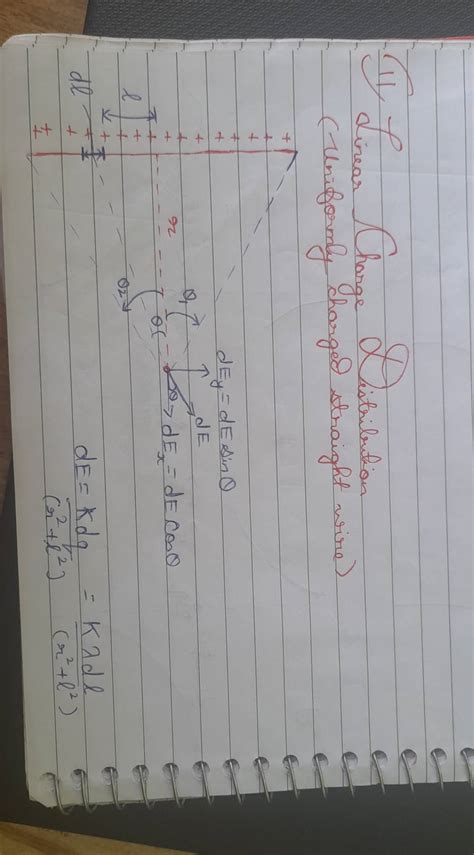 II) Linear Charge Distribution
(Uniformly charged straight wire)
+ + + + + + + + + + + +
l
dl
r
θ1
θ
θ2
dEy = dE sinθ
dE
θ
dEx = dE cosθ
dE = Kdq / (r² + l²) = Kλdl / (r² + l²)